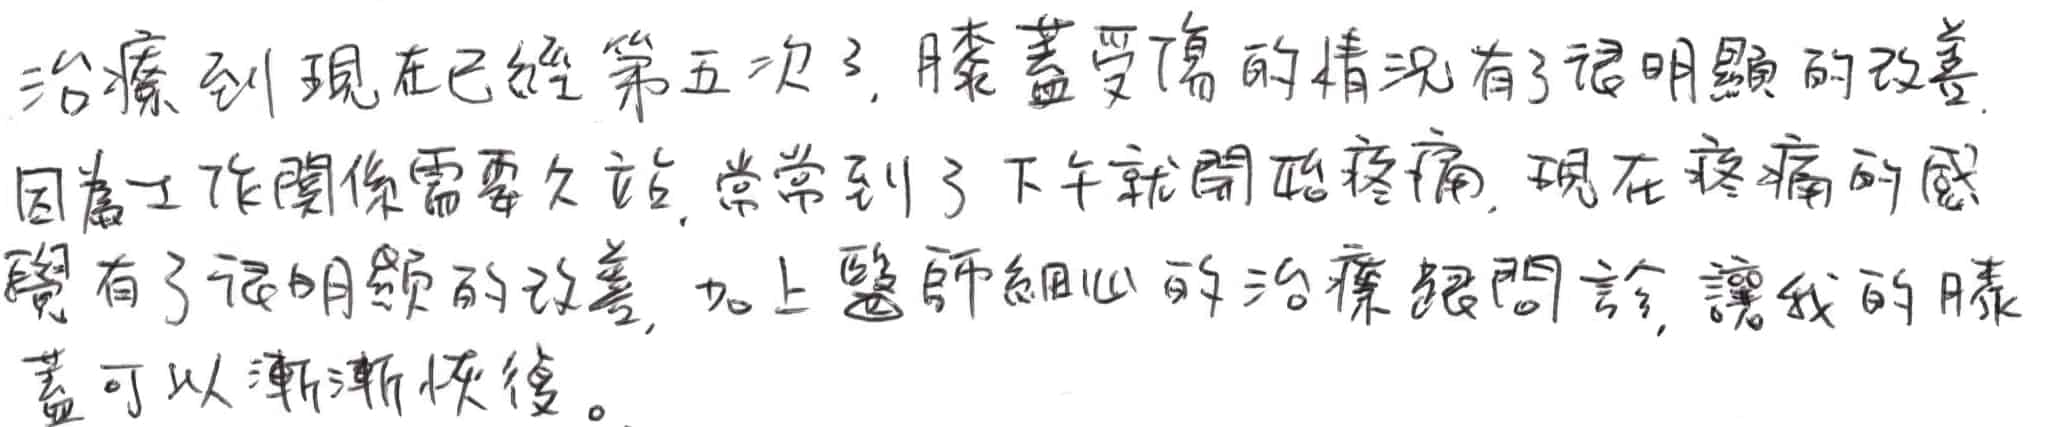 治療到現在已經第五次了,膝蓋受傷的情況有了很明顯的改善.
因為工作關係需要久站,常常到了下午就開始疼痛,現在疼痛的感
覺有了很明顯的改善,加上醫師細心的治療跟問診,讓我的膝
蓋可以漸漸恢復。